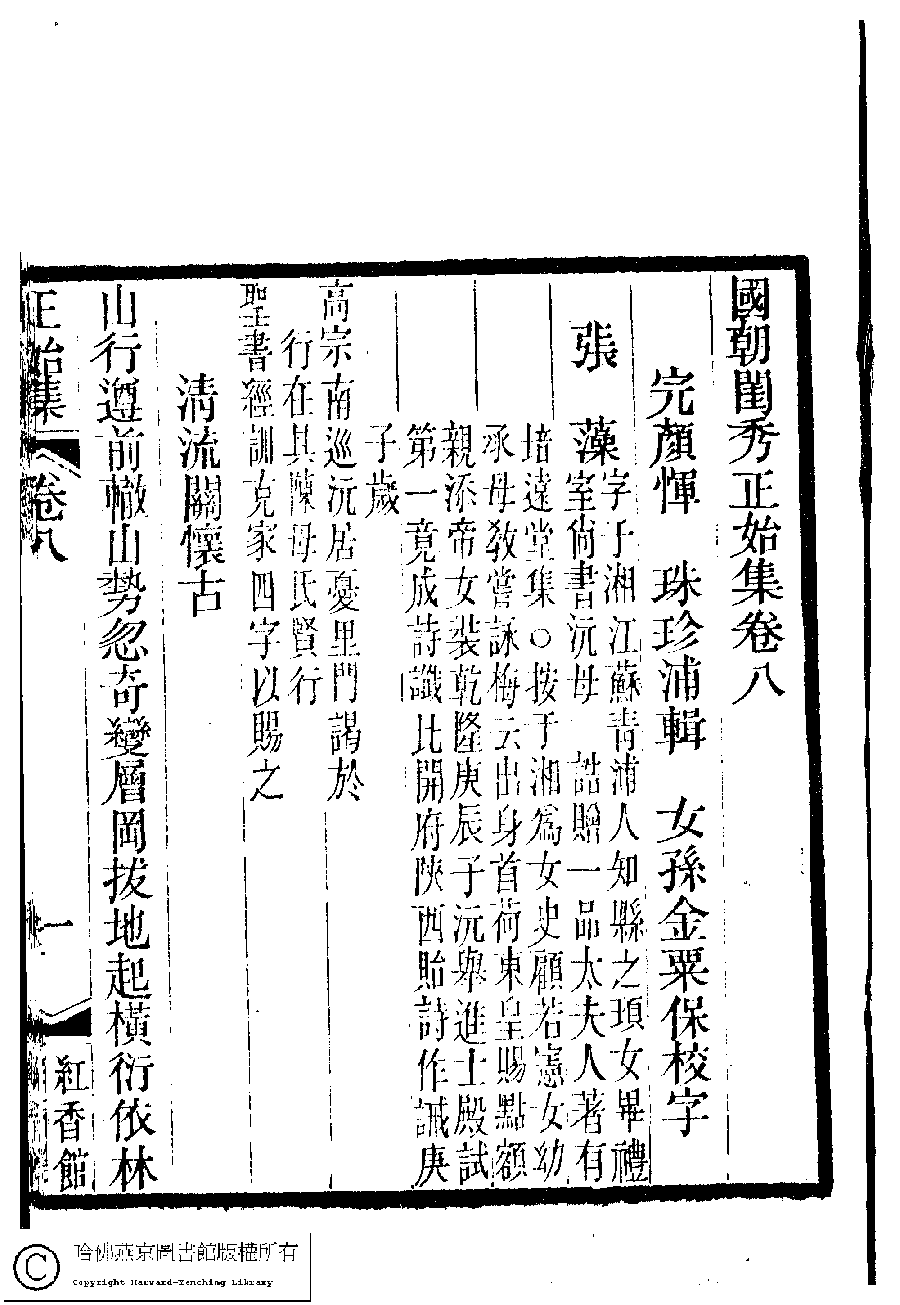 國朝閨秀正始集卷八
完顏惲 珠珍浦輯 女孫金粟保校字
張 藻字子湘江蘇青浦人知縣之頊女畢禮
室尙書沅母 誥贈一品太夫人著有
培遠堂集○按于湘爲女史顧若憲女幼
承母敎嘗詠梅云出身首荷東皇賜點額
親添帝女裝乾隆庚辰子沅舉進士殿試
第一竟成詩讖比開府陝西貽詩作誡庚
子歲
高宗南巡沅居憂里門謁於
行在具陳母氏賢行
聖書經訓克家四字以賜之
清流關懷古
山行遵前轍山勢忽奇變層岡拔地起橫衍依林
正始集 卷八 一 紅香館
哈佛燕京圖書館版權所有
Copyright Harvard-Yenching Library